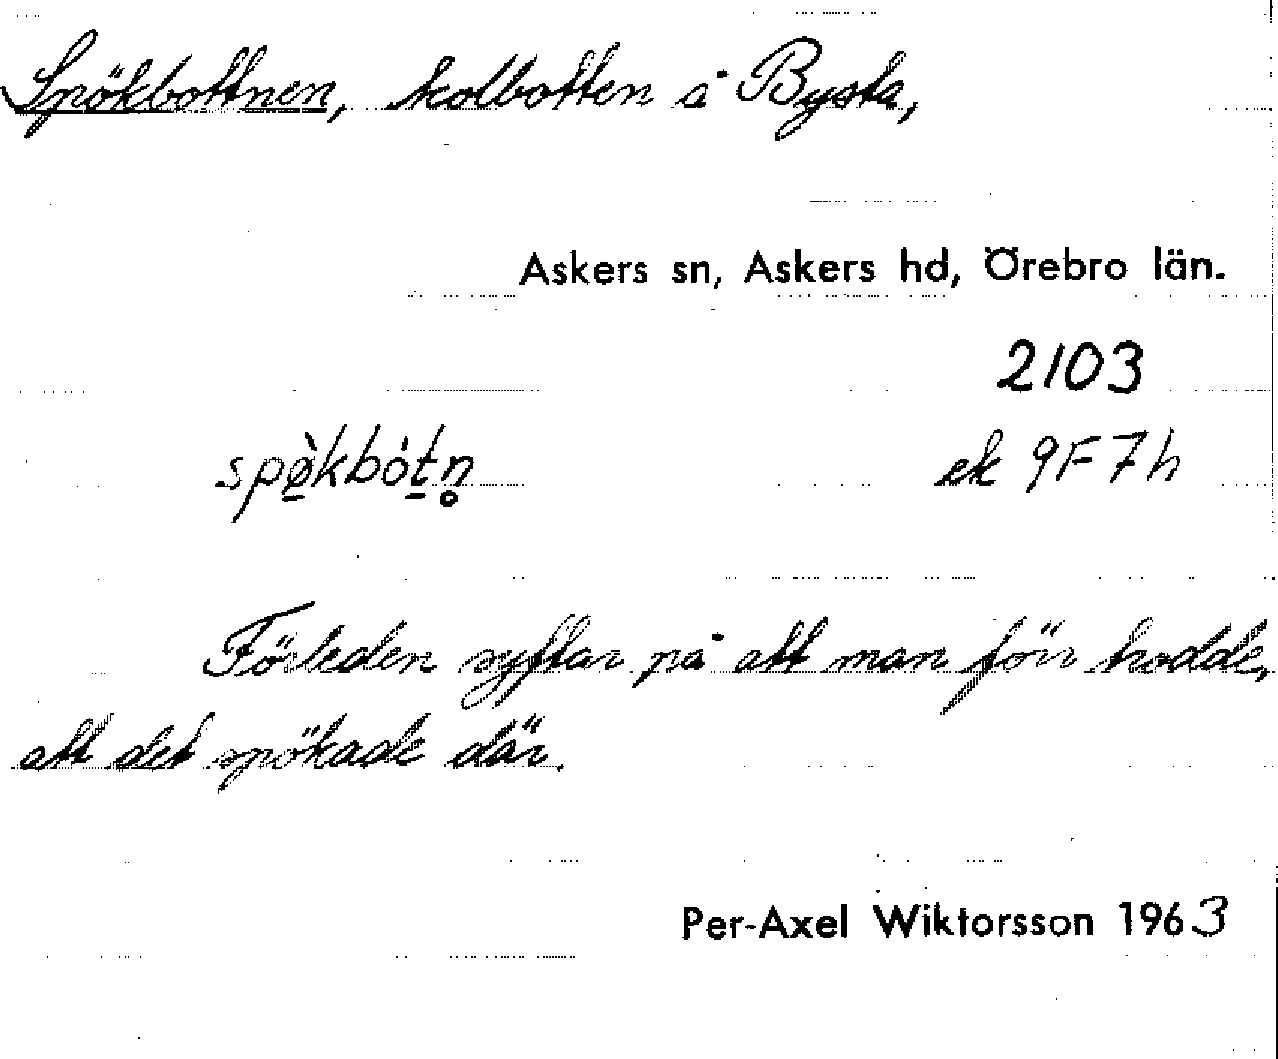 Spökbottnen, kolbotten å Bysta,
Askers sn, Askers hd, Örebro län.
2103
spø̀kbót̠n̥
ek 9F7h
Förleden syftar på att man förr trodde,
att det spökade där.
Per-Axel Wiktorsson 1963